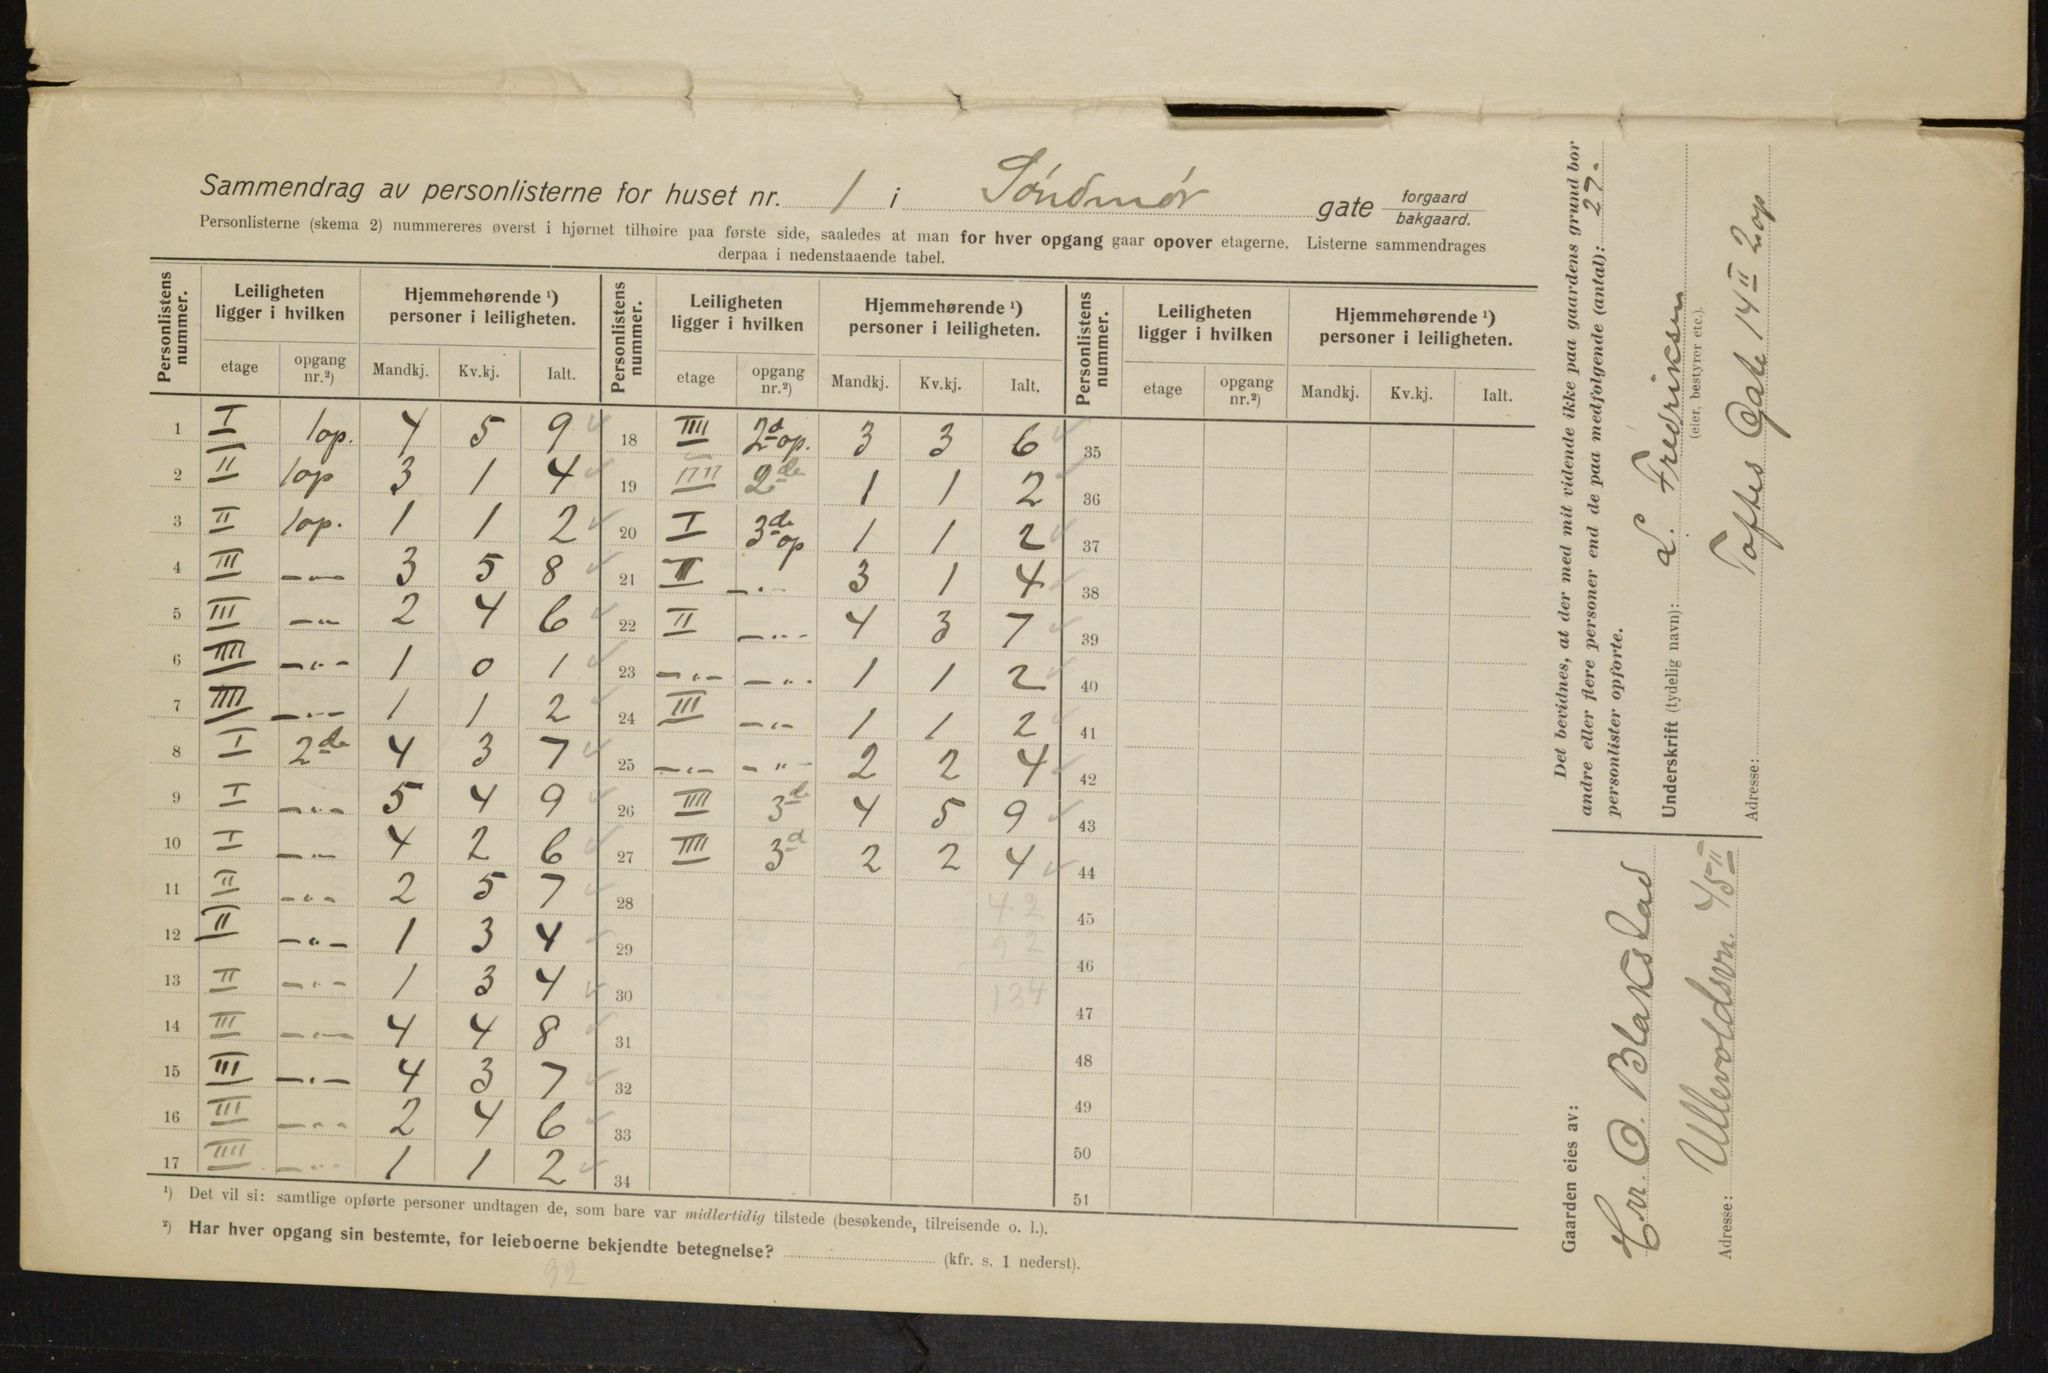 Sammendrag av personlisterne for huset nr. 1 i Söndmör gate forgaard bakgaard.
Personlisterne (skema 2) nummereres øverst i hjørnet tilhøire paa første side, saaledes at man for hver opgang gaar opover etagerne. Listerne sammendrages
derpaa i nedenstaaende tabel.
Personlistens nummer. Leiligheten ligger i hvilken Hjemmehørende ¹) personer i leiligheten. Personlistens nummer. Leiligheten ligger i hvilken Hjemmehørende ¹) personer i leiligheten. Personlistens nummer. Leiligheten ligger i hvilken Hjemmehørende ¹) personer i leiligheten.
etage opgang nr.²) Mandkj. Kv.kj. Ialt. etage opgang nr.²) Mandkj. Kv.kj. Ialt. etage opgang nr.²) Mandkj. Kv.kj. Ialt.
1 I 1op. 4 5 9 18 IIII 2d op. 3 3 6 35
2 II 1op 3 1 4 19 IIII 2de 1 1 2 36
3 II 1op. 1 1 2 20 I 3de op 1 1 2 37
4 III –"– 3 5 8 21 II –"– 3 1 4 38
5 III –"– 2 4 6 22 II –"– 4 3 7 39
6 IIII –"– 1 0 1 23 –"– –"– 1 1 2 40
7 IIII –"– 1 1 2 24 III –"– 1 1 2 41
8 I 2de 4 3 7 25 –"– –"– 2 2 4 42
9 I –"– 5 4 9 26 IIII 3de 4 5 9 43
10 I –"– 4 2 6 27 IIII 3d 2 2 4 44
11 II –"– 2 5 7 28 42 45
12 II –"– 1 3 4 29 92 46
13 II –"– 1 3 4 30 134 47
14 III –"– 4 4 8 31 48
15 III –"– 4 3 7 32 49
16 III –"– 2 4 6 33 50
17 IIII –"– 1 1 2 34 51
¹) Det vil si: samtlige opførte personer undtagen de, som bare var midlertidig tilstede (besøkende, tilreisende o. l.).
²) Har hver opgang sin bestemte, for leieboerne bekjendte betegnelse? (kfr. s. 1 nederst).
92
Det bevidnes, at der med mit vidende ikke paa gaardens grund bor
andre eller flere personer end de paa medfølgende (antal): 27.
personlister opførte.
Underskrift (tydelig navn): L. Fredriksen
(eier, bestyrer etc.).
Adresse: Toftes Gate 14 II 2op
Gaarden eies av:
Hrr. O. Blakstad
Adresse: Ullevoldsvn. 45 II